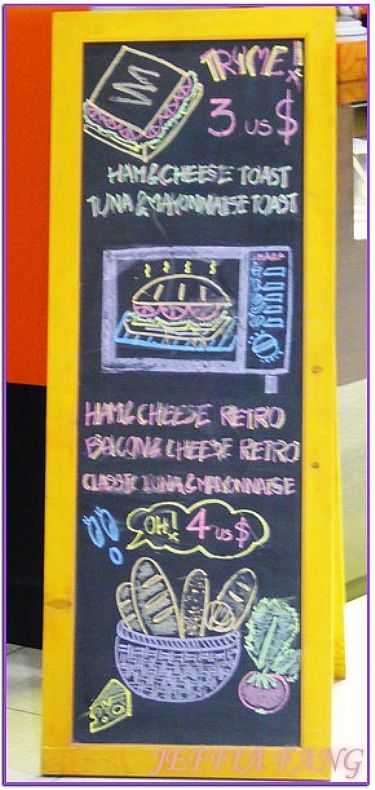 TRY ME!
3 US $
HAM & CHEESE TOAST
TUNA & MAYONNAISE TOAST
SHARP
HAM & CHEESE RETRO
BACON & CHEESE RETRO
CLASSIC TUNA & MAYONNAISE
OH! 4 US $
JEFFIA FANG